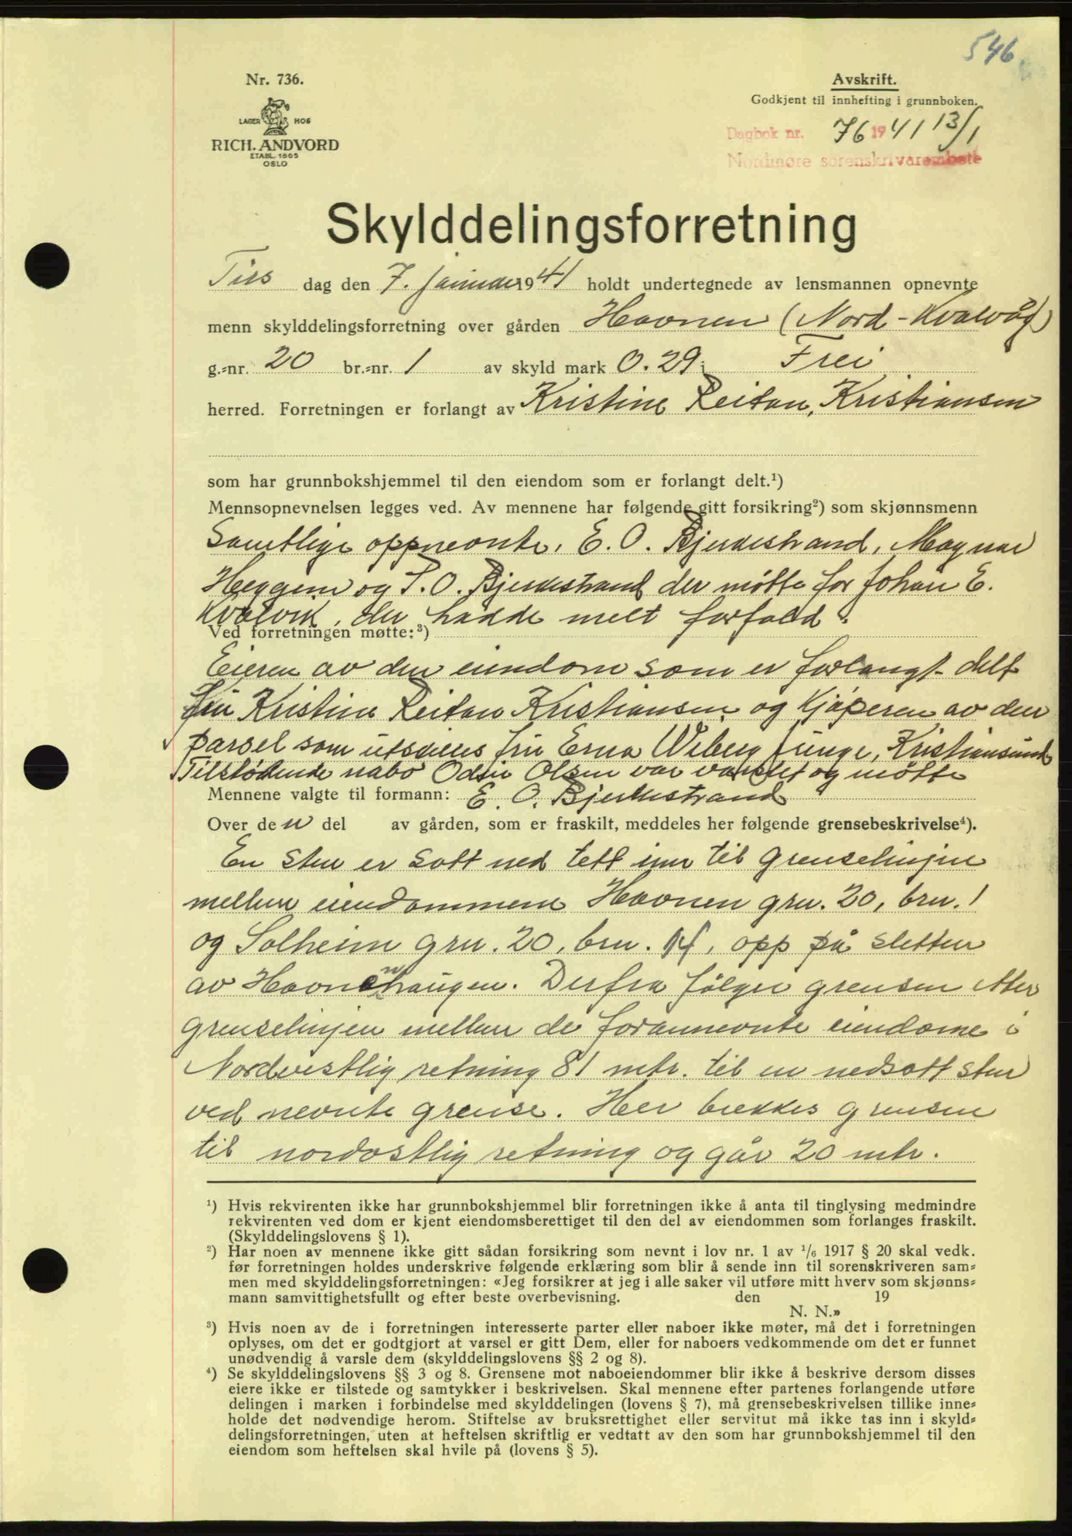 546
Nr. 736.
LAGER HOS
RICH. ANDVORD
ETABL. 1865
OSLO
Avskrift.
Godkjent til innhefting i grunnboken.
Dagbok nr. 76 1941 13/1
Nordmøre sorenskriverembete
Skylddelingsforretning
Tirs dag den 7. januar 1941 holdt undertegnede av lensmannen opnevnte
menn skylddelingsforretning over gården Havnen (Nord-Kvalvåg)
g.=nr. 20 br.=nr. 1 av skyld mark 0.29 i Frei
herred. Forretningen er forlangt av Kristine Reitan, Kristiansen
som har grunnbokshjemmel til den eiendom som er forlangt delt.¹)
Mennsopnevnelsen legges ved. Av mennene har følgende gitt forsikring²) som skjønnsmenn
Samtlige oppnevnte, E. O. Bjerkestrand, Magnar
Heggem og P. O. Bjerkestrand der møtte for Johan E.
Kvalvik, der hadde melt forfald.
Ved forretningen møtte:³)
Eieren av den eiendom som er forlangt delt
fru Kristine Reitan Kristiansen og kjøperen av den
parsel som utskilles fru Erna Wiberg Junge, Kristiansund
Tilstøtende nabo Odin Olsen var varslet og møtte
Mennene valgte til formann: E. O. Bjerkestrand
Over den del av gården, som er fraskilt, meddeles her følgende grensebeskrivelse⁴).
En sten er satt ned tett inn til grenselinjen
mellem eiendommene Havnen grn. 20, brn. 1
og Solheim grn. 20, brn. 14, opp på sletten
av Havnenhaugen. Derfra følger grensen etter
grenselinjen mellem de forannevnte eiendome i
Nordvestlig retning 81 mtr. til en nedsatt sten
ved nevnte grense. Her brekkes grensen
til nordøstlig retning og går 20 mtr.
¹) Hvis rekvirenten ikke har grunnbokshjemmel blir forretningen ikke å anta til tinglysing medmindre
rekvirenten ved dom er kjent eiendomsberettiget til den del av eiendommen som forlanges fraskilt.
(Skylddelingslovens § 1).
²) Har noen av mennene ikke gitt sådan forsikring som nevnt i lov nr. 1 av ¹/₆ 1917 § 20 skal vedk.
før forretningen holdes underskrive følgende erklæring som blir å sende inn til sorenskriveren sam=
men med skylddelingsforretningen: «Jeg forsikrer at jeg i alle saker vil utføre mitt hverv som skjønns=
mann samvittighetsfullt og efter beste overbevisning. den 19
N. N.»
³) Hvis noen av de i forretningen interesserte parter eller naboer ikke møter, må det i forretningen
oplyses, om det er godtgjort at varsel er gitt Dem, eller for naboers vedkommende om det er funnet
unødvendig å varsle dem (skylddelingslovens §§ 2 og 8).
⁴) Se skylddelingslovens §§ 3 og 8. Grensene mot naboeiendommer blir ikke å beskrive dersom disses
eiere ikke er tilstede og samtykker i beskrivelsen. Skal mennene efter partenes forlangende utføre
delingen i marken i forbindelse med skylddelingen (lovens § 7), må grensebeskrivelsen tillike inne=
holde det nødvendige herom. Stiftelse av bruksrettighet eller servitut må ikke tas inn i skyld=
delingsforretningen, uten at heftelsen skriftlig er vedtatt av den som har grunnbokshjemmel til den
eiendom som heftelsen skal hvile på (lovens § 5).